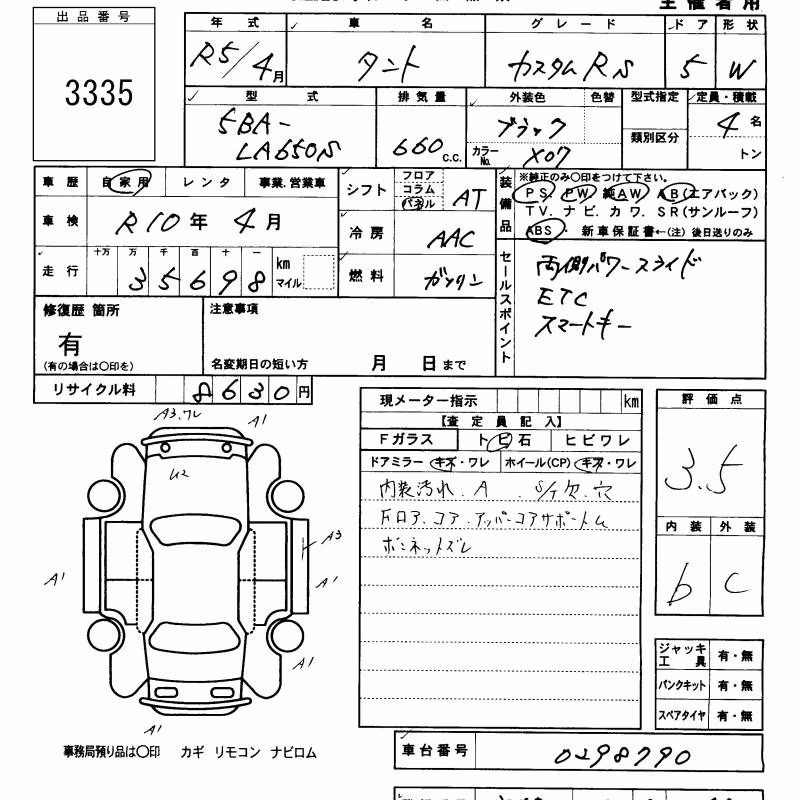 主催者用
出品番号
3335
年式 車名 グレード ドア 形状
R5/4月 タント カスタムRS 5 W
型式 排気量 外装色 色替 型式指定 定員・積載
5BA-
LA650S
660 c.c.
ブラック
カラーNo. X07
類別区分
4名
トン
車歴 自家用 レンタ 事業.営業車
車検 R10年 4月
走行 十万 万 千 百 十 一
35698 km
マイル
シフト フロア コラム パネル AT
冷房 AAC
燃料 ガソリン
装備品
※純正のみ〇印をつけて下さい。
PS. PW 純AW AB(エアバック)
TV. ナビ. カワ. SR(サンルーフ)
ABS・ 新車保証書←(注) 後日送りのみ
セールスポイント
両側パワースライド
ETC
スマートキー
修復歴 箇所
有
(有の場合は〇印を)
注意事項
名変期日の短い方 月 日まで
リサイクル料 8630円
現メーター指示 km
【査定員記入】
Fガラス トビ石 ヒビワレ
ドアミラー キズ・ワレ ホイール(CP) キズ・ワレ
内装汚れ. A . S/T欠.穴
Fロア.コア.アッパーコアサポートム
ボンネットズレ
評価点
3.5
内装 外装
b C
A3.ワレ A1
U2
A3
A1 A1
A1
A1
ジャッキ工具 有・無
パンクキット 有・無
スペアタイヤ 有・無
事務局預り品は〇印 カギ リモコン ナビロム
車台番号 0298790